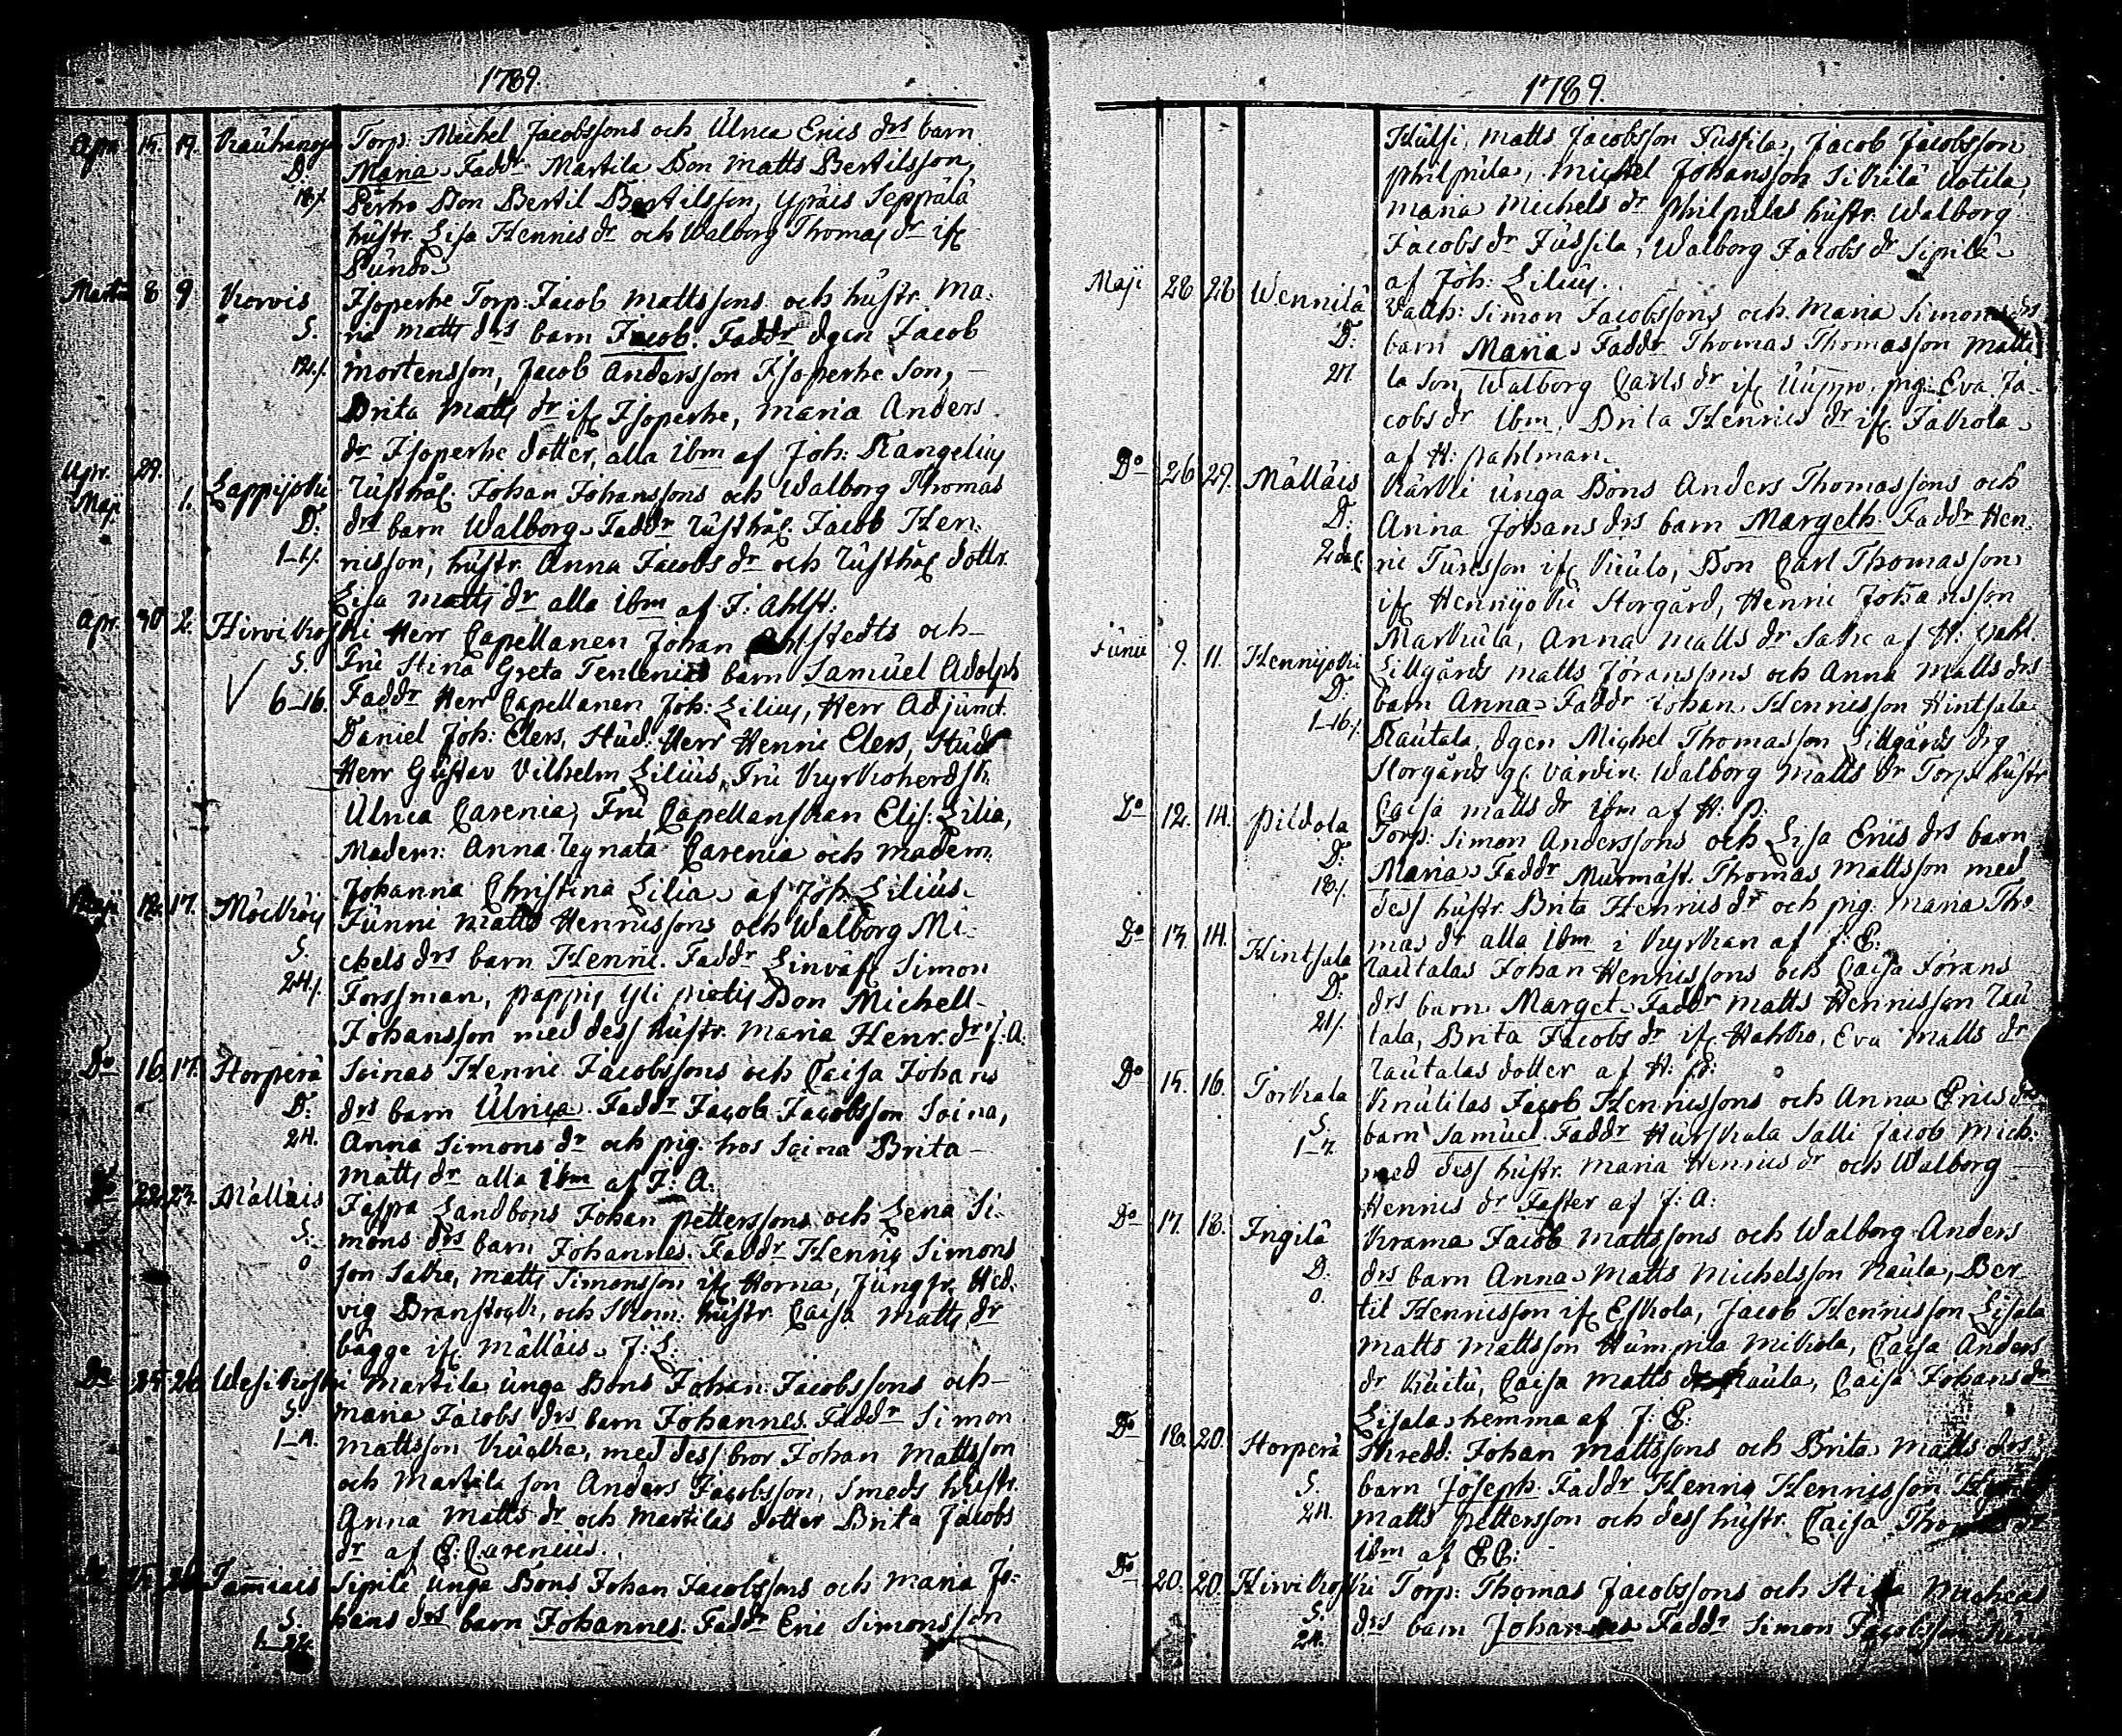 1789.
Apr. 15. 19. Rauhanoja Torp: Michel Jacobssons och Ulrica Erics drs barn
D. Maria. Faddr Martila Bon Matts Bertilsson,
Pertro Bon Bertil Bertilsson, Ypäis Seppälä
hustr. Lisa Henrics dr och Walborg Thomas dr if
Martii 8 9 Korvis Isoperhe Torp. Jacob Mattssons och hustr. Ma-
S. ria Matts drs barn Jacob. Faddr dgen Jacob
12./. Mortensson, Jacob Andersson Isoperhe Son, -
Brita Matts dr if Isoperhe, Maria Anders
dr Isoperhe dotter, alla ibm af Joh: Rangelius
Apr. 29.
Maji 1. Lappijoki Rusthål. Johan Johanssons och Walborg Thomas
D: drs barn Walborg. Faddr Rusthål. Jacob Hen-
ricsson, hustr. Anna Jacobs dr och Rusthål dottr.
Lisa Matts dr alla ibm af J: Ahlst:
Apr. 30 2. Hirvikoski Herr Capellanen Johan Ahlstedts och-
S. Fru Stina Greta Tenlenies barn Samuel Adolph
6_16. Faddr Herr Capellanen Joh: Lilius, Herr Adjunct.
Daniel Joh: Elers, Stud: Herr Henric Elers, Stud
Herr Gustav Vilhelm Lilius, Fru Kyrkoherdsk.
Ulrica Carenia, Fru Capellanskan Elis: Lilia,
Madem: Anna Regnata Carenia och Madem:
Johanna Christina Lilia, af Joh: Lilius.
Maji 12. 17. Mäckäis Junni Matts Henricssons och Walborg Mi-
S. ckels drs barn Henric. Faddr Linväf Simon
24./. Forssman, Pappis Yli pietis Bon Michell-
Johansson med dess hustr. Maria Henr. dr J: A.
Do 16. 17. Horperä Soinas Henric Jacobssons och Caisa Johans
D: drs barn Ulrica. Faddr Jacob Jacobsson Soina,
24. Anna Simons dr och pig. hos Soina Brita -
Matts dr alla ibm af J: A.
Do 22. 23. Mälläis Jaspra Landbons Johan Petterssons och Lena Si-
S. mons drs barn Johannes. Faddr Henric Simons
o son Satre, Matts Simonsson if Horna, Jungfr. Hed-
vig Branstock, och Skom: hustr. Caisa Matts dr
bägge if Mälläis. J: L:
Do 25 26 Wesikoski Martila unga Bons Johan Jacobssons och-
S. Maria Jacobs drs barn Johannes. Faddr Simon
1_4. Mattsson Kuctka, med dess bror Johan Mattsson
och Martila son Anders Jacobsson, Smeds hustr.
Anna Matts dr och Martilas dotter Brita Jacobs
dr af E: Carenius.
Tammiais Sipilä unga Bons Johan Jacobssons och Maria Jo-
S. hans drs barn Johannes. Faddr Eric Simonsson
1789.
Matts Jacobsson Jussila, Jacob Jacobsson
Philpula, Michel Johansson Sikilä Uotila,
Maria Michels dr Philpulas hustr. Walborg
Jacobs dr Jussila, Walborg Jacobs dr Sipilä
af Joh: Lilius.
Maji 28 28 Wennilä Vakth: Simon Jacobssons och Maria Simons drs
D: barn Maria. Faddr Thomas Thomasson Matti-
la Son, Walborg Carls dr if Uuppo. pig. Eva Ja-
cobs dr ibm, Brita Henrics dr if Jakola
af H: Pahlman.
Do 26 29. Mälläis Kärki unga Bons Anders Thomassons och
D: Anna Johans drs barn Margeth. Faddr Hen-
ric Jurisson if Kiulo, Bon Carl Thomasson
if Hennijoki Storgård, Henric Johansson
Markula, Anna Matts dr Satre af H: Pahl.
Junii 9. 11. Hennijoki Lillgårds Matts Jöranssons och Anna Matts drs
D: barn Anna. Faddr Johan Henricsson Hintsala
1_16./. Rautala, dgen Michel Thomasson Lillgårds drg
Storgårds gl. värdin: Walborg Matts dr Torp: hustr
Caisa Matts dr ibm af H: P:
Do 12. 14. Pildola Torp: Simon Anderssons och Lisa Erics drs barn
D: Maria. Faddr Murmäst. Thomas Mattsson med
18./. dess hustr. Brita Henrics dr och pig. Maria Tho-
mas dr alla ibm i Kyrkan af J: E:
Do 13. 14. Hintsala Rautalas Johan Henricssons och Caisa Jörans
D: drs barn Marget. Faddr Matts Henricsson Rau
21/. tala, Brita Jacobs dr if Hahko, Eva Matts dr
Rautalas dotter af H: P:
Do 15. 16. Torkala Knutilas Jacob Henricssons och Anna Erics drs
S. barn Samuel. Faddr Hurskala Salli Jacob Mich.
1_7. med dess hustr. Maria Henrics dr och Walborg -
Henrics dr Faster af J: A:
Do 17. 18. Ingilä Krama Jacob Mattssons och Walborg Anders
D: drs barn Anna. Matts Michelsson Raula, Ber-
o. til Henricsson if Eskola, Jacob Henricsson Lisala
Matts Mattsson Humpila Mikola, Caisa Anders
dr Kuitu, Caisa Matts dr Raula, Caisa Johans dr
Lisala, hemma af J: E:
Do 18. 20. Horperä Skredd: Johan Mattssons och Brita Matts drs
S. barn Joseph. Faddr Henric Henricsson
24. Matts Pettersson och dess hustr. Caisa
ibm af E C:
Do 20. 20. Hirvikoski Torp: Thomas Jacobssons och Stina
S. drs barn Johannes Faddr Simon Jacobsson
24.